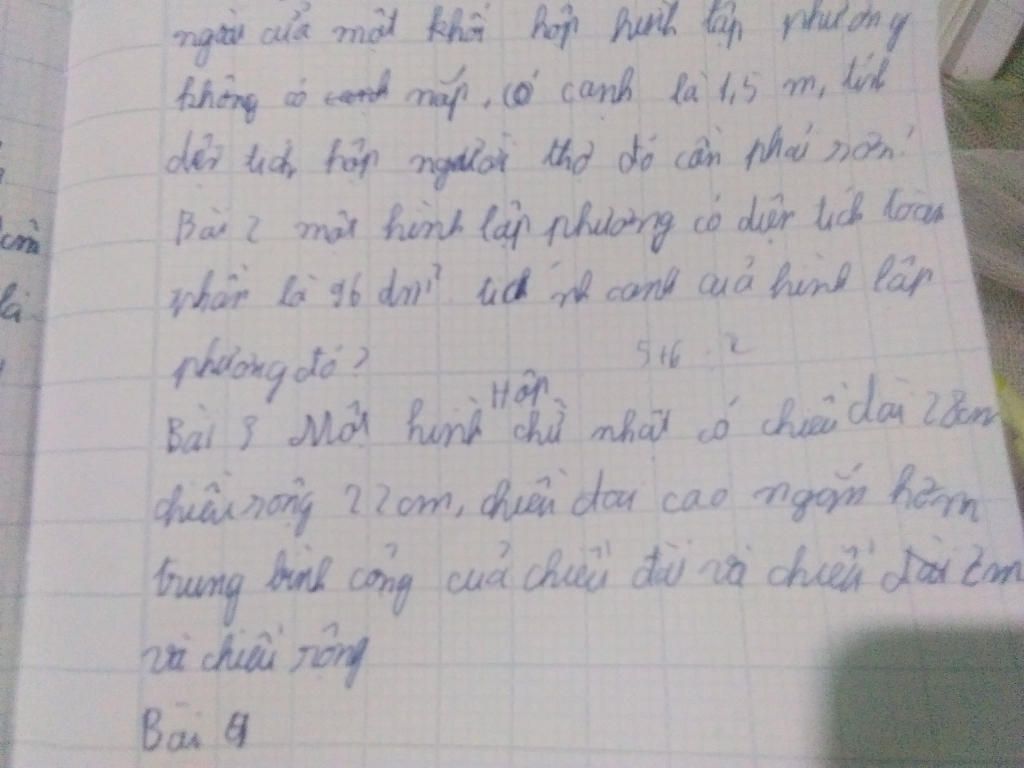 ngoài của một khối hộp hình lập phương
không có nắp, có cạnh là 1,5 m, tính
diện tích hộp người thợ đó cần phải sơn?
Bài 2 một hình lập phương có diện tích toàn
phần là 96 dm² cạnh của hình lập
phương đó?
5+6 : 2
Hộp
Bài 3 Một hình chữ nhật có chiều dài 28cm
chiều rộng 22cm, chiều dai cao ngắn hơn
trung bình cộng của chiều dài và chiều dài 2m
và chiều rộng
Bài 4
cm
là